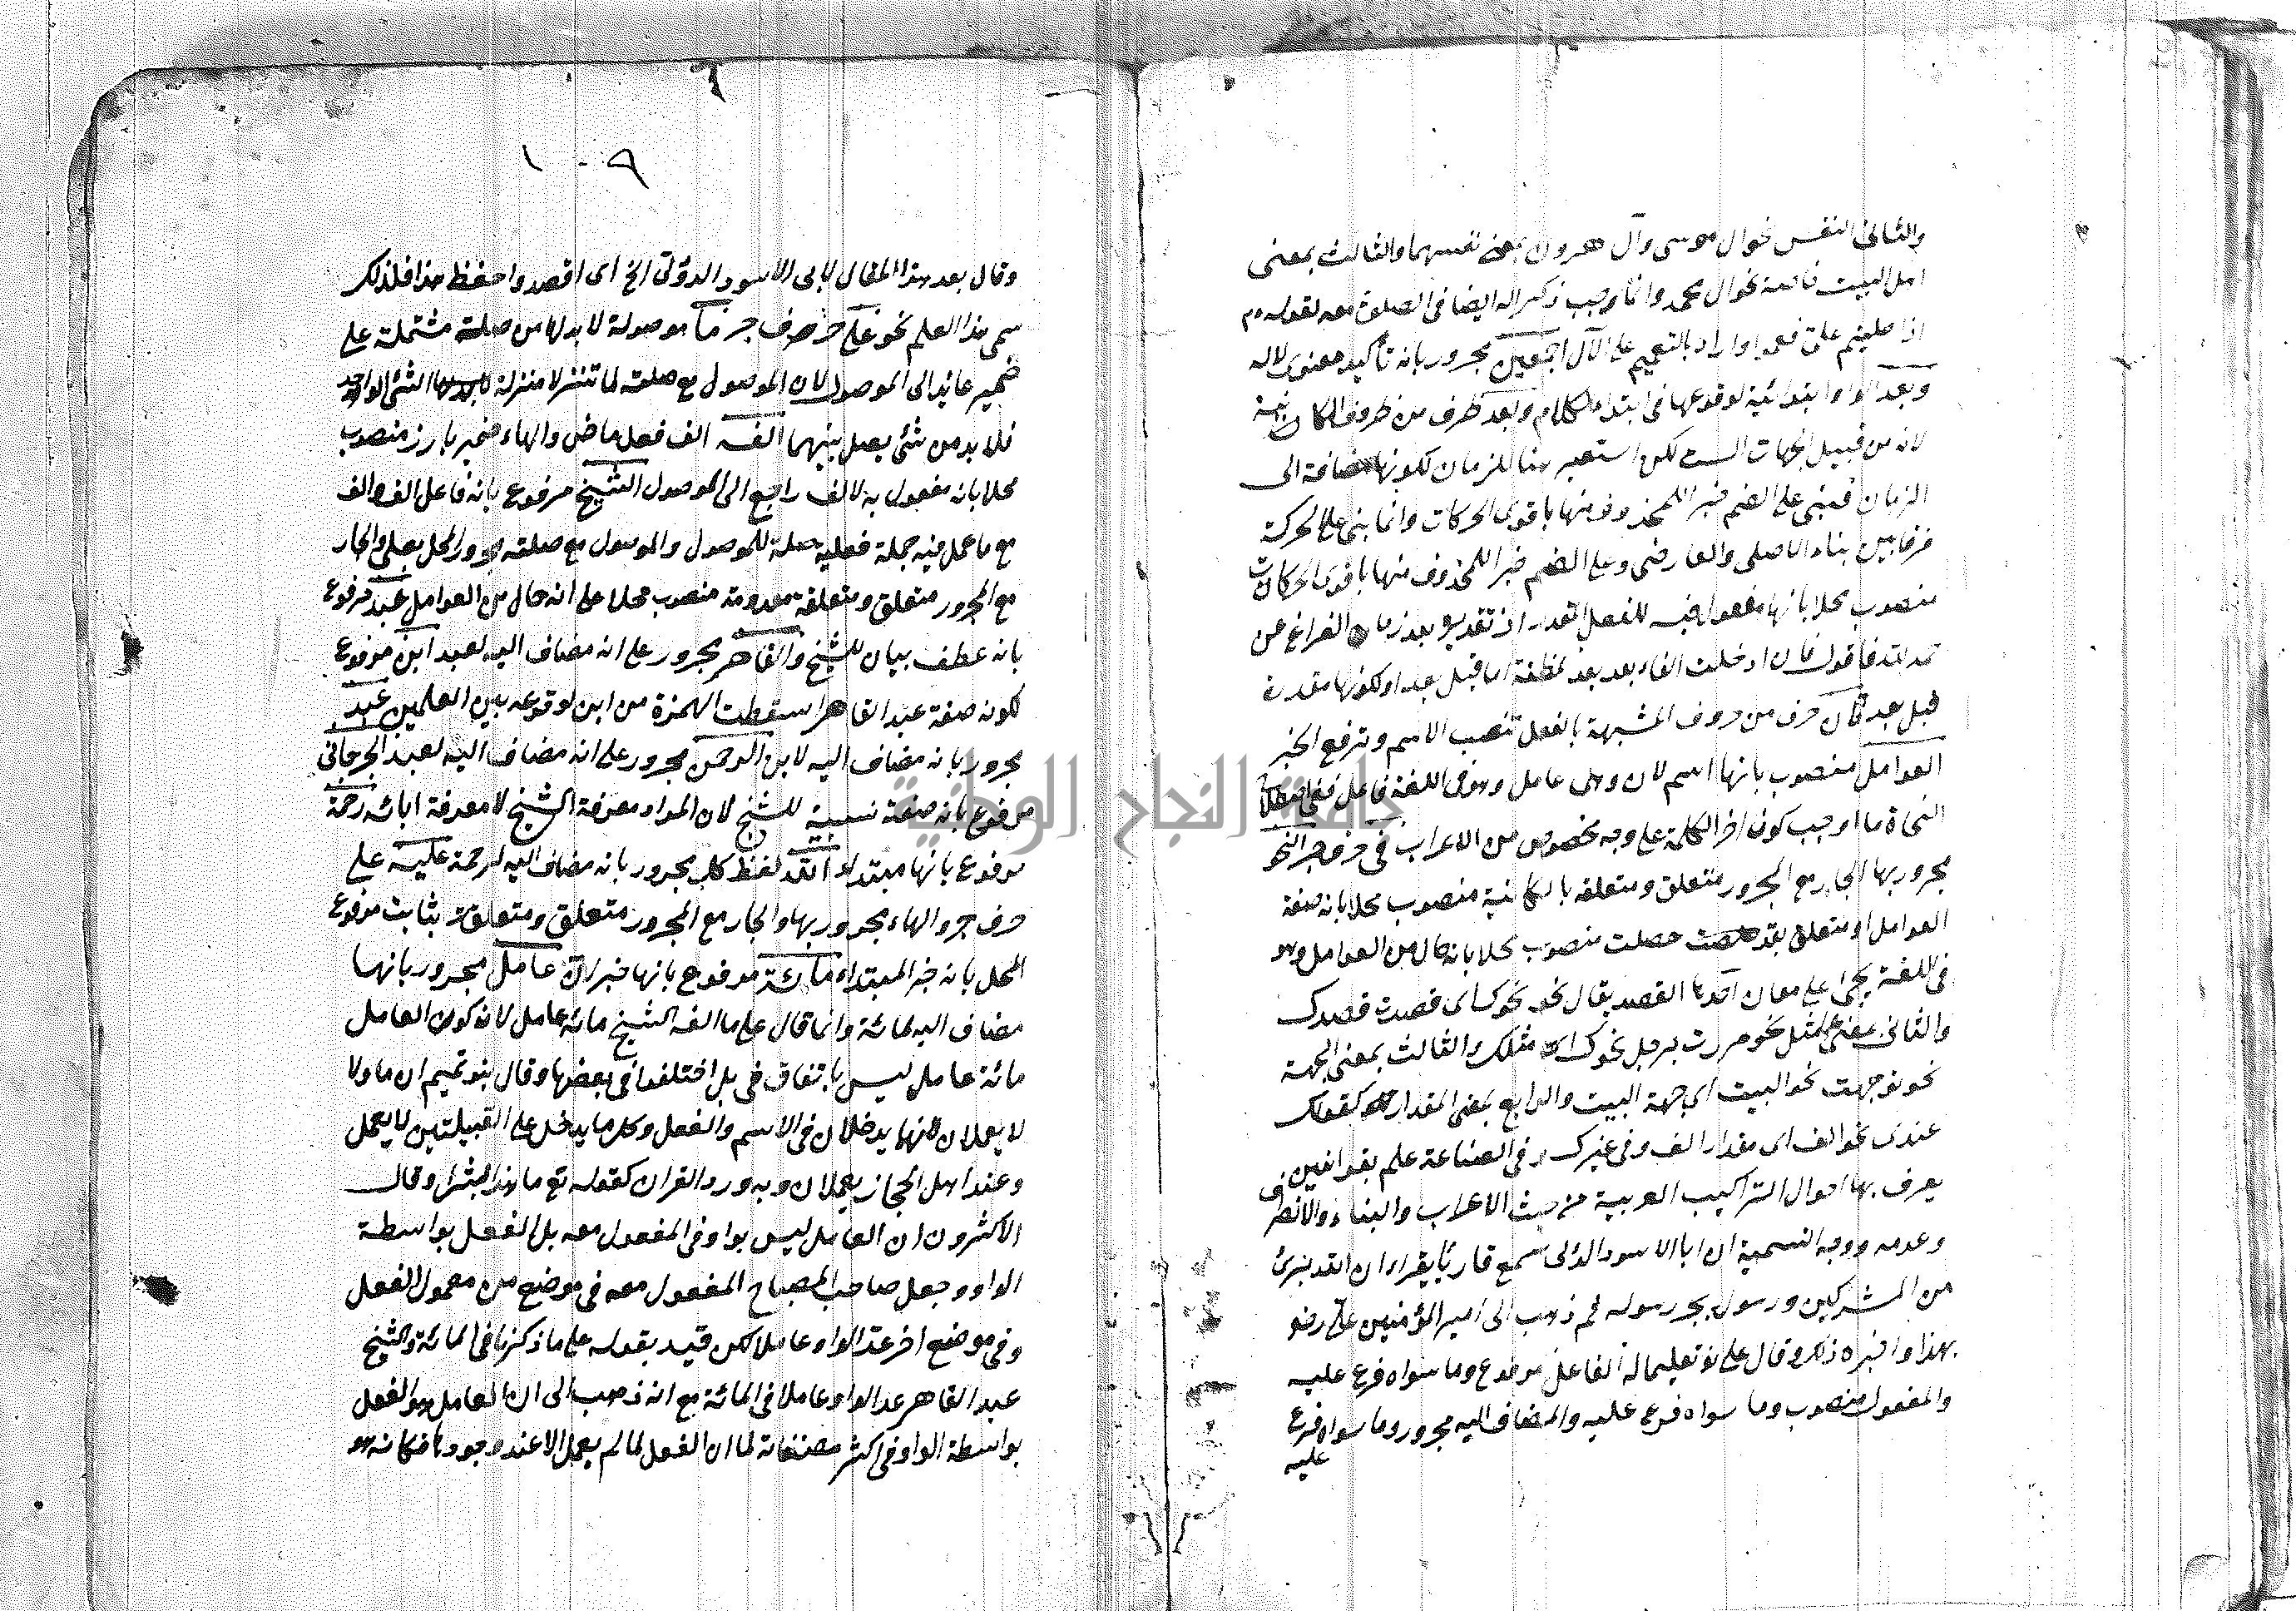 والثانى النفس نحو ال موسى وآل هرون بمعنى نفسهما والثالث بمعنى
اهل البيت خاصة نحو ال محمد وانما وجب ذكر اله ايضا فى الصلوة معه لقوله عم
اذا صليتم على فعمموا واراد بالتعميم على الآل اجمعين مجرور بانه تأكيد معنوى لاله
وبعد الواو ابتدائية لوقوعها فى ابتداء الكلام وبعد ظرف من ظروف المكان
لانه من قبيل الجهات الست لكن استعير هنا للزمان لكونها مضافة الى
الزمان فبنى على الضم جبرا للمحذوف منها باقوى الحركات وانما بنى على الحركة
فرقا بين بناء الاصلى والعارضى وعلى الضم جبرا للمحذوف منها باقوى الحركات
منصوب محلا بانها مفعول فيه للفعل المقدر اذ تقديره بعد زمان الفراغ عن
حمد الله فاقول فان ادخلت الفاء بعد بعد لفظة اما قبل بعد او لكونها مقدرة
قبل بعد فان حرف من حروف المشبهة بالفعل تنصب الاسم وترفع الخبر
العوامل منصوب بانها اسم لان وهى عامل وهو فى اللغة فاعل ففى اصطلاح
النحاة ما اوجب كون اخر الكلمة على وجه مخصوص من الاعراب فى حرف جر النحو
مجرور بها الجار مع المجرور متعلق ومتعلقه بالكائنية منصوب محلا بانه صفة
العوامل او متعلق بقد حصلت منصوب محلا بانه حال من العوامل وهو
فى اللغة يجئ على معان احدها القصد يقال نحوت نحوك اى قصدت قصدك
والثانى بمعنى المثل نحو مررت برجل نحوك اى مثلك والثالث بمعنى الجهة
نحو توجهت نحو البيت اى جهة البيت والرابع بمعنى المقدار كقولك
عندى نحو الف اى مقدار الف وفى غيرك وفى الصناعة علم بقوانين
يعرف بها احوال التراكيب العربية من حيث الاعراب والبناء والانصراف
وعدمه ووجه التسمية ان ابا الاسود الدؤلى سمع قارئا يقرا ان الله برئ
من المشركين ورسوله بجر رسوله ثم ذهب الى امير المؤمنين على رضو
بهذا واخبره ذلك وقال على تعليما له الفاعل مرفوع وما سواه فرع عليه
والمفعول منصوب وما سواه فرع عليه والمضاف اليه مجرور وما سواه فرع
عليه
١٠٩
وقال بعد هذا المقال لابى الاسود الدؤلى انح اى اقصد واحفظ هذا فلذلك
سمى هذا العلم نحو على حرف جر ما موصولة لا بد لها من صلة مشتملة على
ضمير عائد الى الموصول لان الموصول مع صلته لما تنزلا منزلة الشئ الواحد
فلا بد من شئ يصل بينهما الفه الف فعل ماض والهاء ضمير بارز منصوب
محلا بانه مفعول به لالف راجع الى الموصول الشيخ مرفوع بانه فاعل الف والف
مع ما عمل فيه جملة فعلية صلة للموصول والموصول مع صلته مجرور المحل بعلى والجار
مع المجرور متعلق ومتعلقه معدومة منصوب محلا على انه حال من العوامل عبد مرفوع
بانه عطف بيان للشيخ والقاهر مجرور على انه مضاف اليه لعبد ابن مرفوع
لكونه صفة عبد القاهر اسقطت الهمزة من ابن لوقوعه بين العلمين عبد
مجرور بانه مضاف اليه لابن الرحمن مجرور على انه مضاف اليه لعبد الجرجانى
مرفوع بانه صفة نسبية للشيخ لان المراد معرفة الشيخ لا معرفة ابائه رحمة
مرفوع بانها مبتداء الله لفظ كل مجرور بانه مضاف اليه لرحمة عليه على
حرف جر والهاء مجرور بها والجار مع المجرور متعلق ومتعلق بثابت مرفوع
المحل بانه خبر المبتداء مائة مرفوع بانها خبر ان عامل مجرور بانها
مضاف اليه لمائة وانما قال على ما الفه الشيخ مائة عامل لان كون العامل
مائة عامل ليس باتفاق فى بل اختلفوا فى بعضها وقال بنو تميم ان ما ولا
لا يعملان لانهما يدخلان فى الاسم والفعل وكلما يدخل على القبيلتين لا يعمل
وعند اهل الحجاز يعملان وبه ورد القران كقوله تع ما هذا بشرا وقال
الاكثرون ان العامل ليس بواو فى المفعول معه بل الفعل بواسطة
الواو وجعل صاحب المصباح المفعول معه فى موضع من معمول الفعل
وفى موضع اخر عد الواو عاملا لكن قيد بقوله على ما ذكرنا فى المائة والشيخ
عبد القاهر عد الواو عاملا فى المائة مع انه ذهب الى ان العامل هو الفعل
بواسطة الواو فى اكثر مصنفاته لما ان الفعل لما لم يعمل الا عند وجودها فكانه هو
جامعة النجاح الوطنية